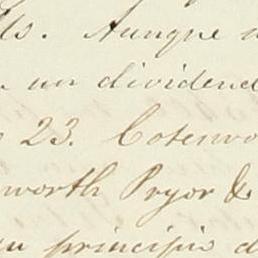 lls. Aunque
un dividend
23. Cotenwo
nworth Pryor &
su principio d